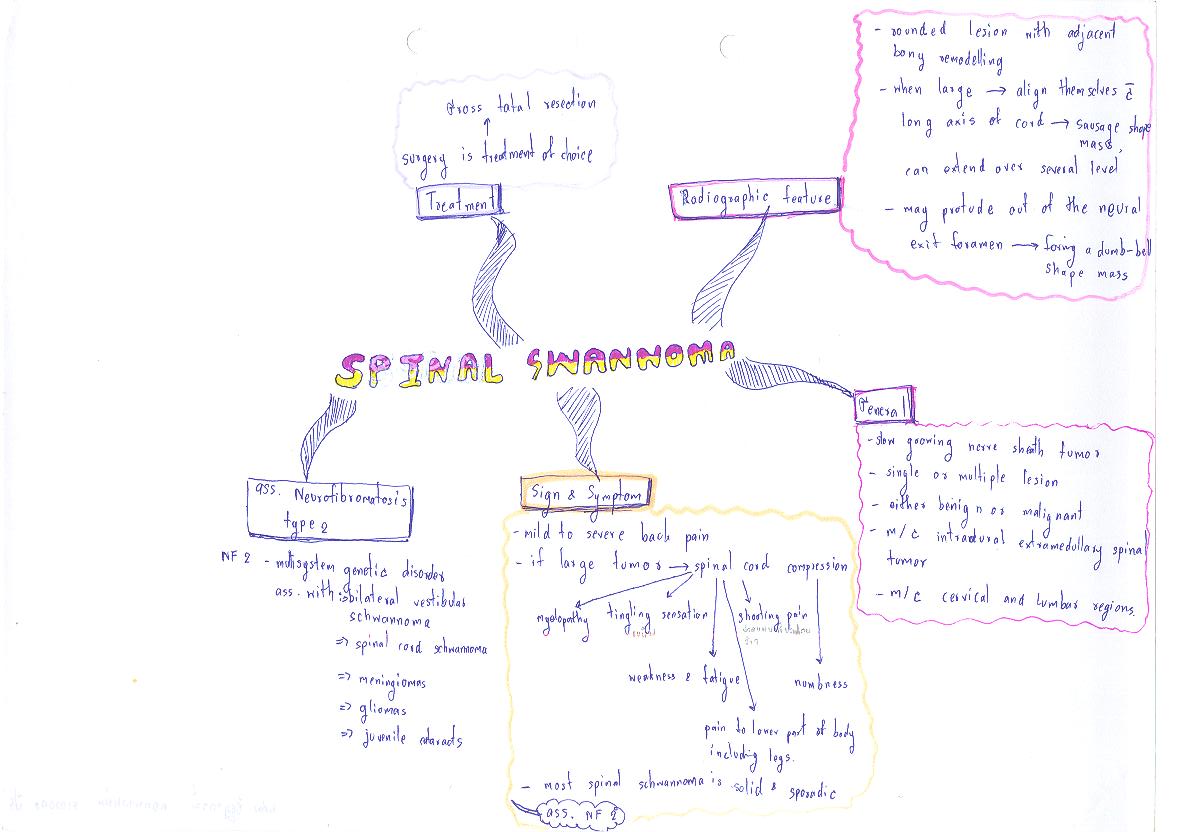 Gross tatal resection
surgery is treatment of choice
Treatment
Radiographic feature
- rounded lesion with adjacent
bony remodelling
- when large → align themselves c̄
long axis of cord → sausage shape
mass,
can extend over several level
- may protude out of the neural
exit foramen → foring a dumb-bell
shape mass
SPINAL SWANNOMA
General
- slow growing nerve sheath tumor
- single or multiple lesion
- either benign or malignant
- m/c intradural extramedullary spinal
tumor
- m/c cervical and lumbar regions.
ass. Neurofibromatosis
type 2
NF 2 - multisystem genetic disorder
ass. with => bilateral vestibular
schwannoma
=> spinal cord schwannoma
=> meningiomas
=> gliomas
=> juvenile cataracts
Sign & Symptom
- mild to severe back pain
- if large tumor → spinal cord compression
myelopathy
tingling sensation
shooting pain
weakness & fatigue
numbness
pain to lower part of body
including legs.
- most spinal schwannoma is solid & sporadic
ass. NF 2